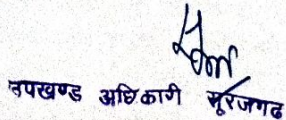 उपखण्ड अधिकारी सूरजगढ